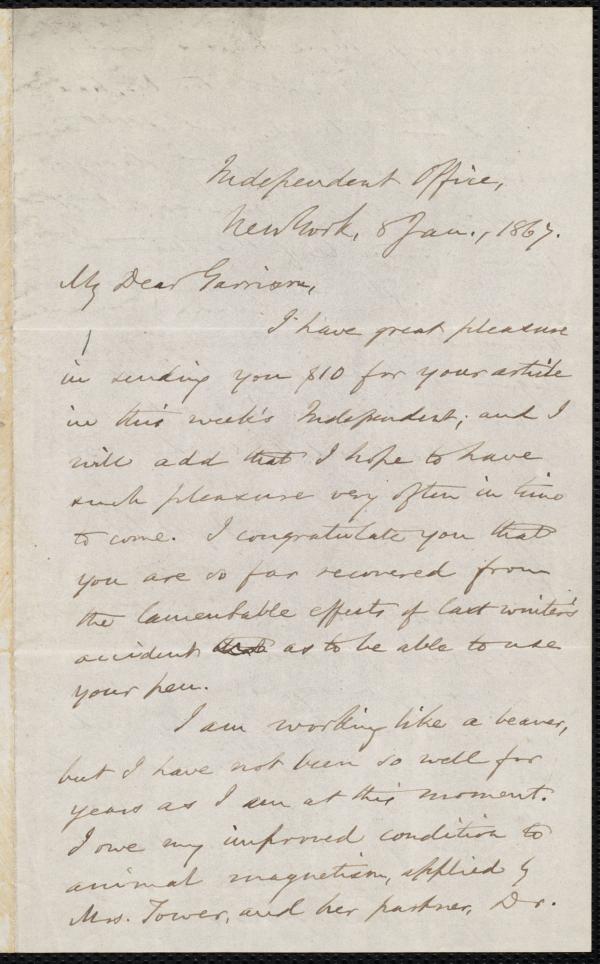 Independent Office,
New York, 8 Jan., 1867.
My Dear Garrison,
I have great pleasure
in sending you $10 for your article
in this week's Independent; and I
will add that I hope to have
such pleasure very often in time
to come. I congratulate you that
you are so far recovered from
the lamentable effects of last winter's
accident as to be able to use
your pen.
I am working like a beaver,
but I have not been so well for
years as I am at this moment.
I owe my improved condition to
animal magnetism, applied by
Mrs. Tower, and her partner, Dr.